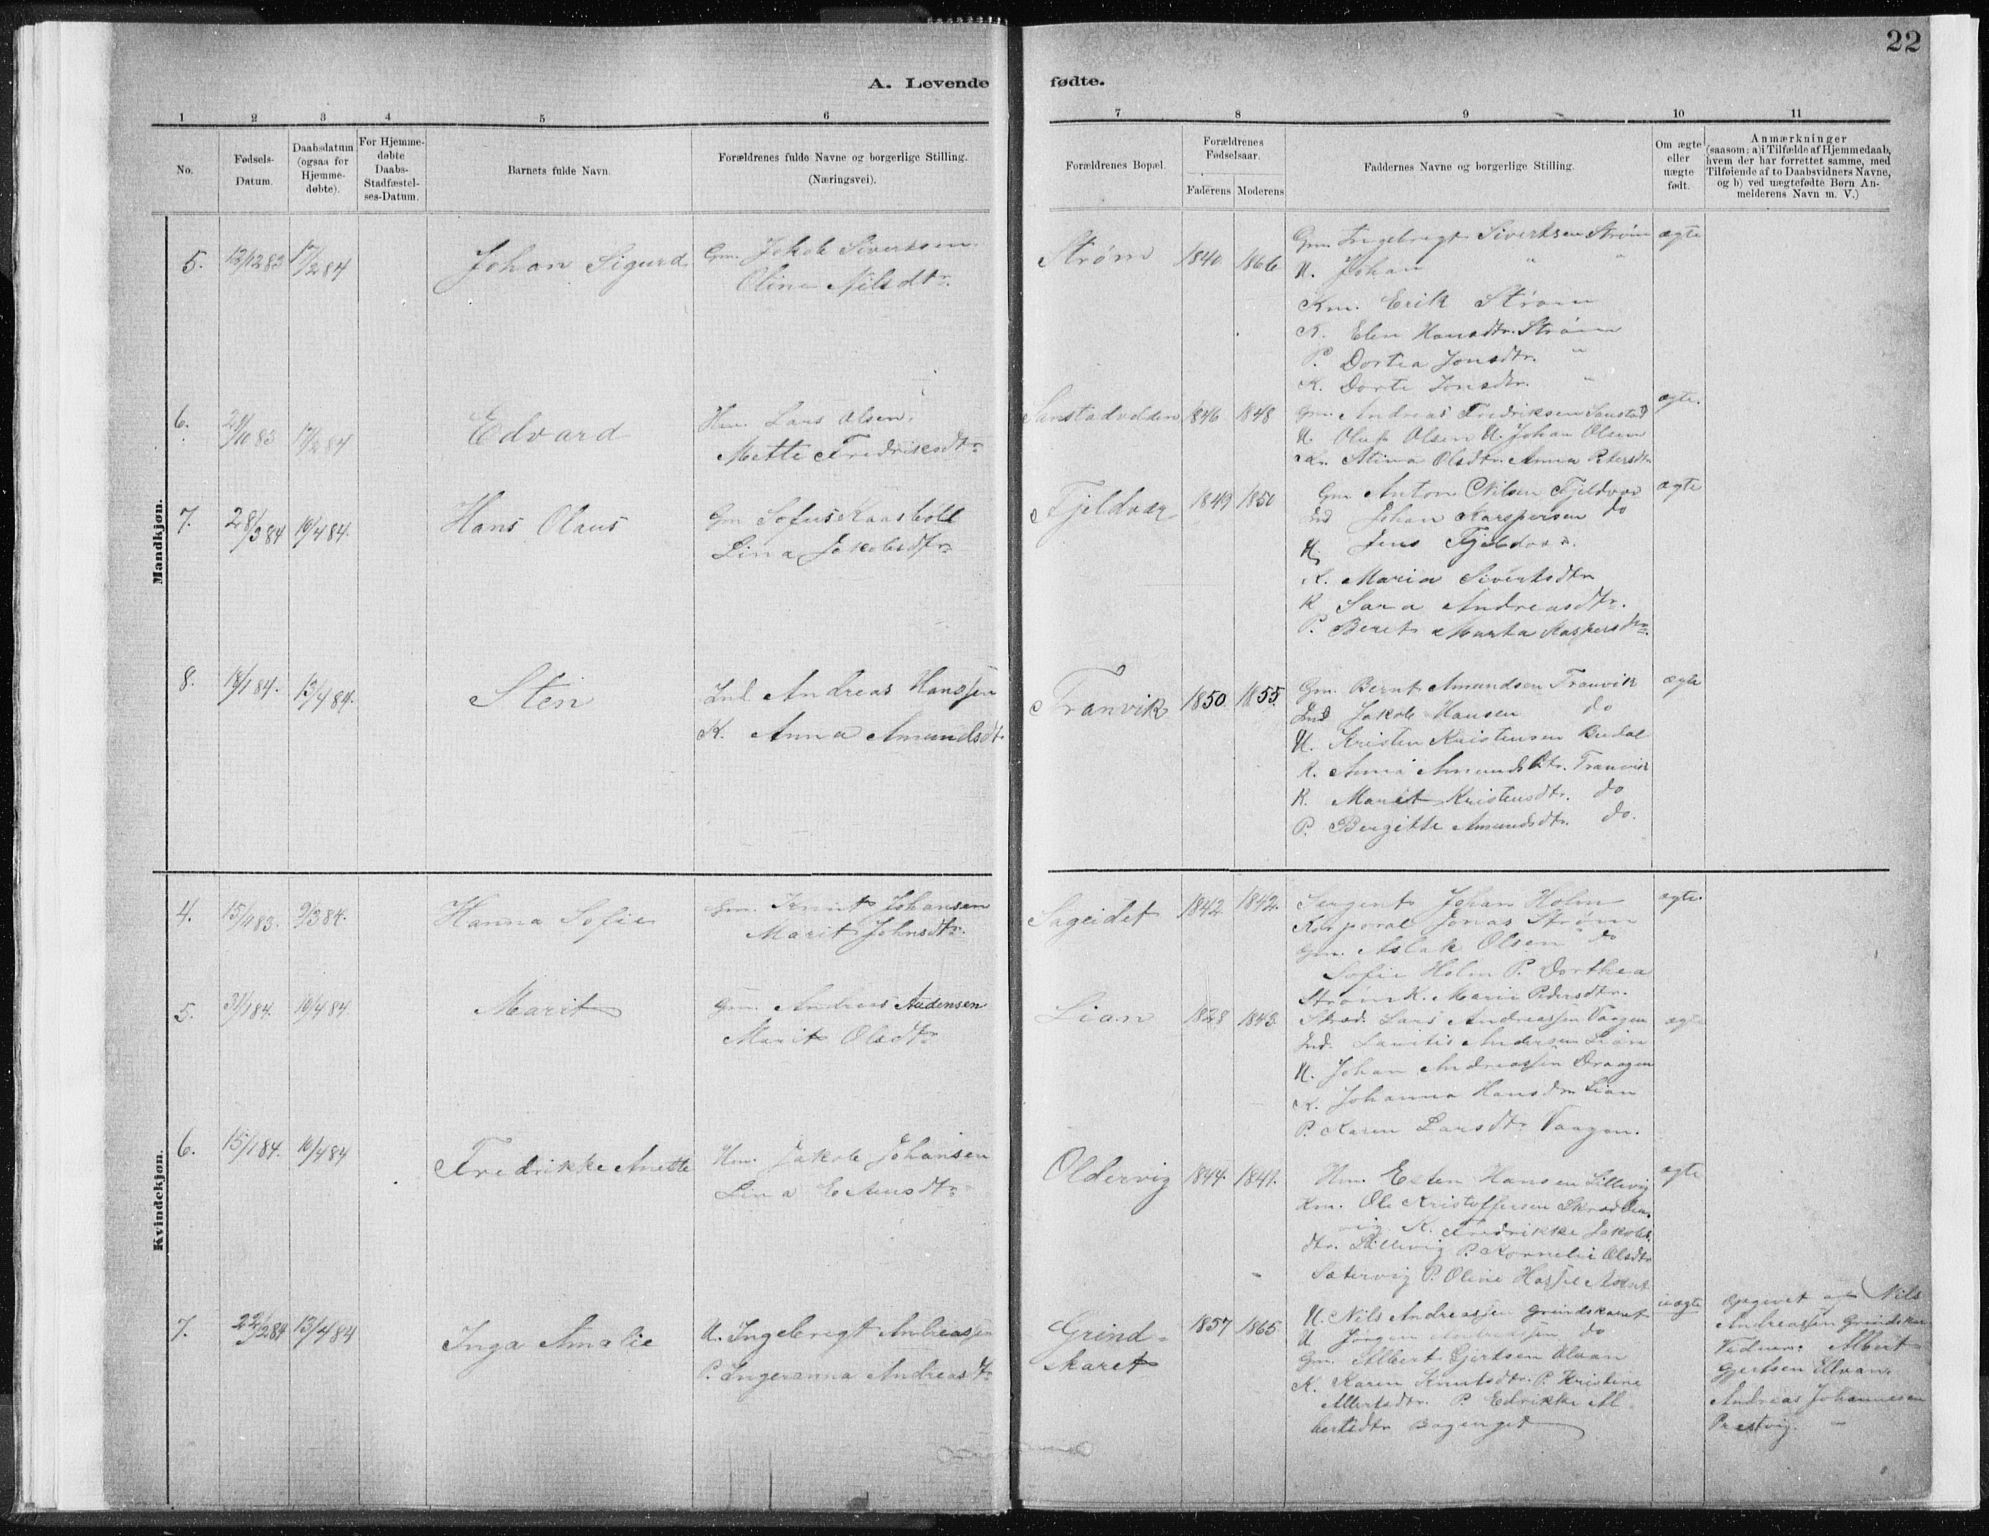 22
A. Levende fødte.
1 2 3 4 5 6 7 8 9 10 11
No.
Fødsels-Datum.
Daabsdatum (ogsaa for Hjemme-døbte).
For Hjemme-døbte Daabs-Stadfæstel-ses-Datum.
Barnets fulde Navn.
Forældrenes fulde Navne og borgerlige Stilling.
(Næringsvei).
Forældrenes Bopæl.
Forældrenes Fødselsaar.
Faderens Moderens
Faddernes Navne og borgerlige Stilling.
Om ægte eller uægte født.
Anmærkninger
(saasom: a) i Tilfælde af Hjemmedaab,
hvem der har forrettet samme, med
Tilføiende af to Daabsvidners Navne,
og b) ved uægtefødte Børn An-
melderens Navn m. V.)
Mandkjøn.
5. 12/12 83 17/2 84 Johan Sigurd
Gm. Jakob Sivertsen
Oline Nilsdtr.
Strøm 1840 1866
Gm. Ingebrigt Sivertsen Strøm ægte
U. Johan " "
Km. Erik Strøm
K. Elen Hansdtr. Strøm
P. Dortea Jonsdtr. "
K. Dorte Jonsdtr. "
6. 17/2 84 Edvard
Hm. Lars Olsen
Mette Fredriksdtr.
1846 1848
Gm. Andreas Fredriksen ægte.
U. Oluf Olsen U. Johan Olsen
Stina Olsdtr. Anna Petersdtr.
7. 28/3 84 16/4 84. Hans Olaus
Gm Sofus Kaasbøll
Lina Jakobsdtr.
Fjeldvær 1849 1850
Gm Anton Nilsen Fjeldvær ægte
Ind Johan Karspersen do
U. Jens Fjeldvær
K. Maria Sivertsdtr
K Sara Andreasdtr.
P. Beret Marta Kaspersdtr.
8. 18/1 84. 13/4 84. Sten
Ind Andreas Hanssen
K. Anna Amundsdtr
Tranvik 1850 1855
Gm. Bernt Amundsen Tranvik ægte
Ind Jakob Hansen do
U. Kristen Kristensen
K. Anna Amundsdtr. Tranvik
K. Marit Kristensdtr. do
P. Bergitte Amundsdtr. do.
Kvindekjøn.
4. 9/3 84. Hanna Sofie
Gm. Knut Johansen
Marit Johnsdtr.
Sageidet 1842 1842.
Sergent Johan Holm ægte.
Korporal Jonas Strøm
Gm. Aslak Olsen do
Sofie Holm P. Dorthea
Strøm K. Marie Pedersdtr.
5. 31/1 84. 16/4 84 Marit
Gm. Andreas Audensen
Marit Olsdtr.
Lian 1828 1843.
Lars Andreassen Vaagen ægte
Ind. Lauritis Andersen Lian
U. Johan Andreassen
K. Johanna Hansdtr Lian
P. Karen Larsdtr Vaagen.
6. 15/1 84. 16/4 84 Fredrikke Anette
Hm. Jakob Johansen
Lina Estensdtr
Oldervig 1844. 1841.
Hm. Esten Hansen Lillevig ægte
Km. Ole Kristoffersen
vig. K. Fredrikke Jakobs
dtr. Lillevig P. Kornelie Olsdtr
Sætervig P. Oline
7. 22/2 84 13/4 84 Inga Amalie
U. Ingebrigt Andreassen
P. Ingeranna Andreasdtr
Grind-
skaret 1857 1865
U. Nils Andreassen Grindskaret uægte
U Jørgen Andreassen do
Gm. Albert Gjertsen Ulvan
K. Karen Knutsdtr. P. Kristine
Albertsdtr. P. Edrikke Al-
bertsdtr
Opgivet af Nils
Andreassen Grindskar
Vidner: Albert
Gjertsen Ulvan,
Andreas Johannesen
Præstvig.